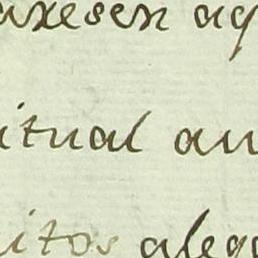 axesen aq
itual an
itos alega